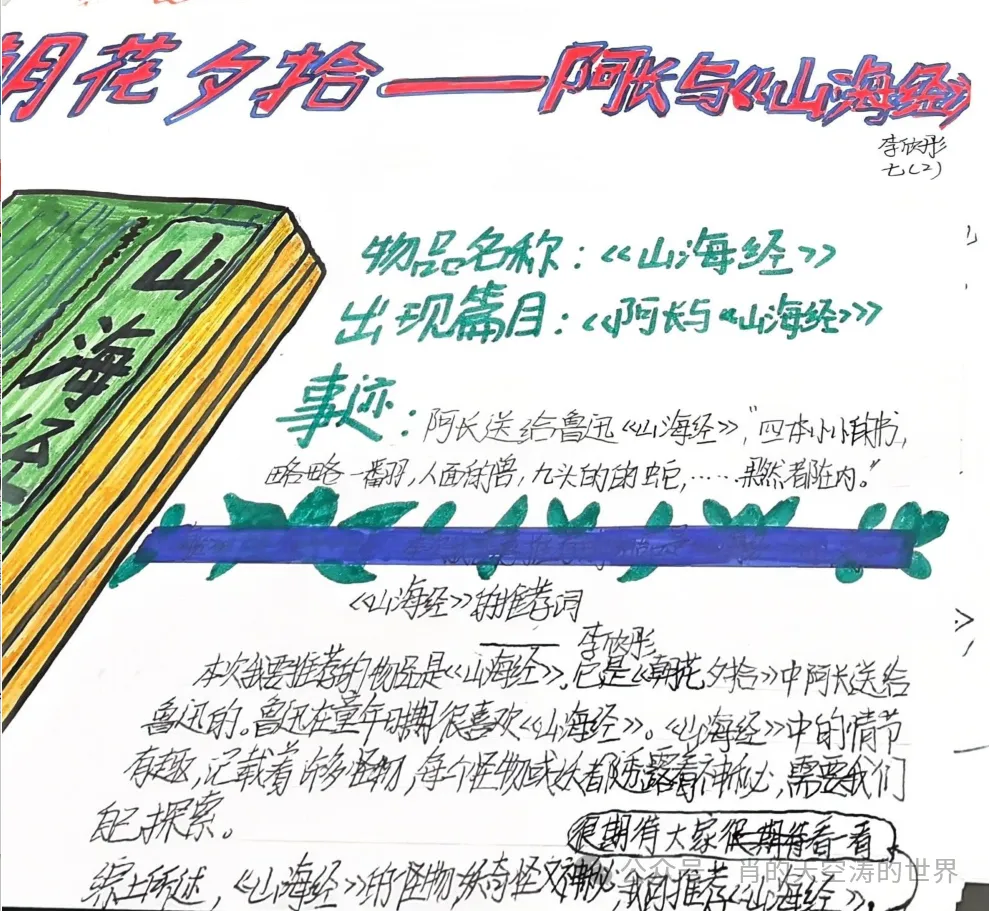 朝花夕拾——阿长与《山海经》
李欣彤
七(2)
山海经
物品名称:《山海经》
出现篇目:《阿长与《山海经》》
事迹:阿长送给鲁迅《山海经》,"四本小小的书,
略略一翻,人面的兽,九头的的蛇,……果然都在内。"
《山海经》的推荐词
——李欣彤
本次我要推荐的物品是《山海经》。它是《朝花夕拾》中阿长送给
鲁迅的。鲁迅在童年时期很喜欢《山海经》。《山海经》中的情节
有趣,记载着许多怪物,每个怪物或妖都透露着神秘,需要我们
自己探索。
很期待大家很期待看一看
综上所述,《山海经》的怪物妖奇怪又神秘,我的推荐《山海经》。
公众号 肖的天空涛的世界